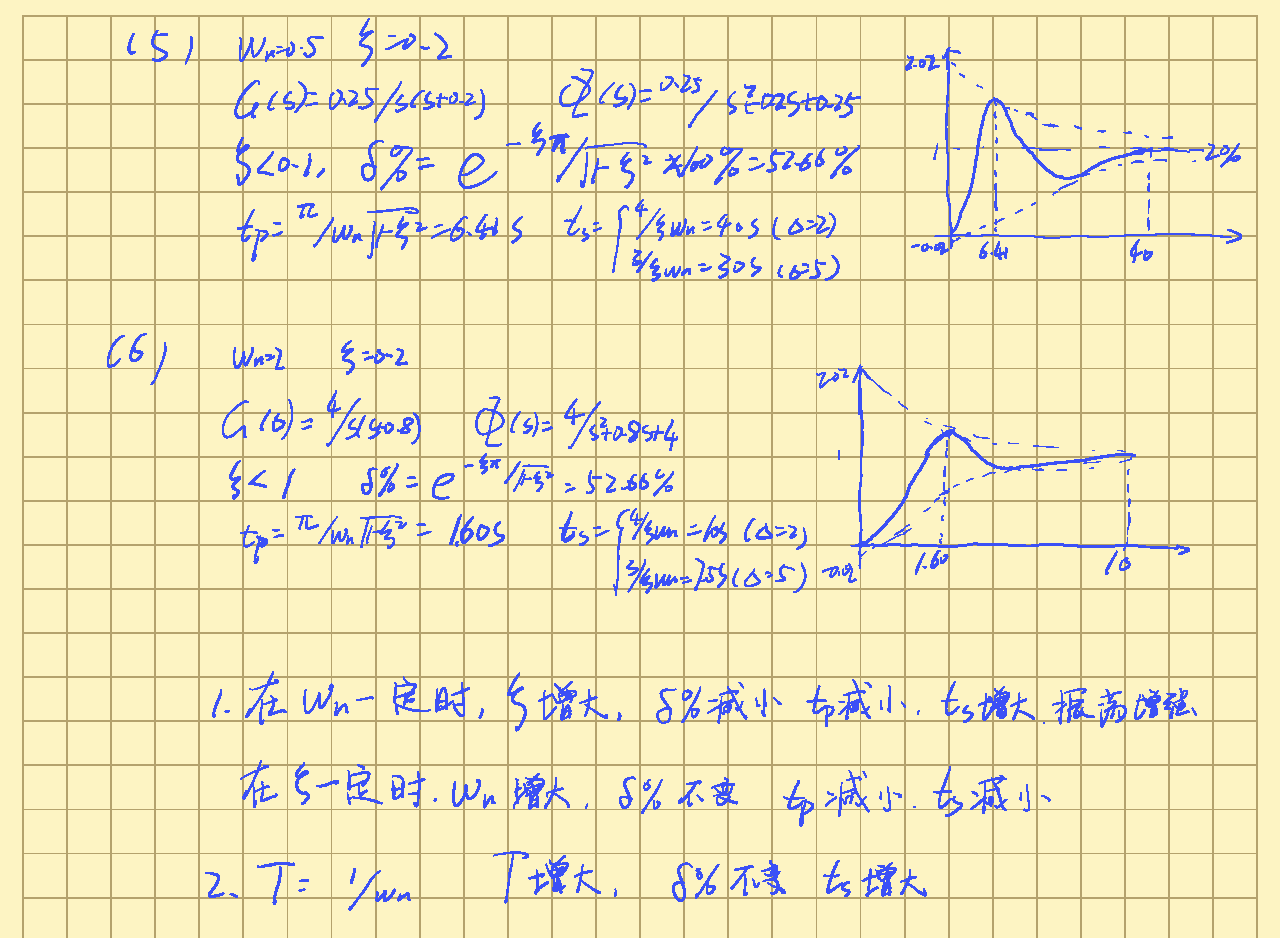 (5) Wn=0.5 ξ=0.2
G(s)=0.25/s(s+0.2) Φ(s)=0.25/s²+0.2s+0.25
ξ<0.1, δ%=e^-ξπ/√1-ξ² ×100%=52.66%
tp=π/Wn√1-ξ²=6.41s ts={4/ξWn=40s (Δ=2)
3/ξWn=30s (Δ=5)
2.02
1
2%
-0.02 6.41 40
(6) Wn=2 ξ=0.2
G(s)=4/s(s+0.8) Φ(s)=4/s²+0.8s+4
ξ<1 δ%=e^-ξπ/√1-ξ²=52.66%
tp=π/Wn√1-ξ²=1.60s ts={4/ξWn=10s (Δ=2)
3/ξWn=7.5s (Δ=5)
2.02
1
-0.02 1.60 10
1. 在Wn一定时, ξ增大, δ%减小 tp减小. ts增大 振荡增强
在ξ一定时. Wn增大. δ%不变 tp减小. ts减小.
2. T=1/Wn T增大, δ%不变 ts增大